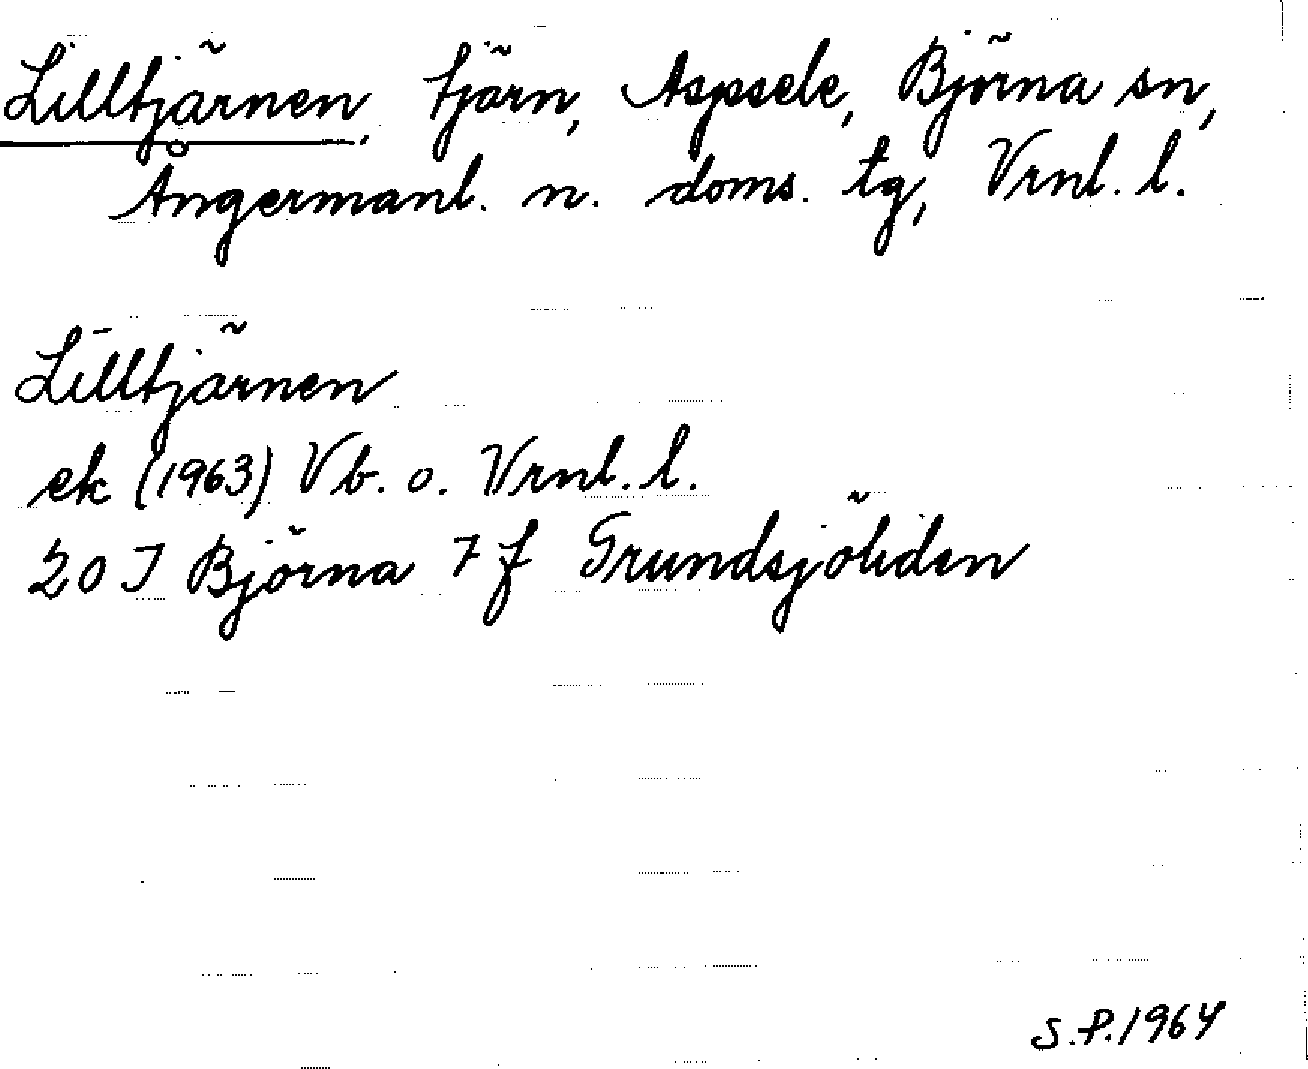 Lilltjärnen, tjärn, Aspsele, Björna sn,
Ångermanl. n. doms. tg, Vrnl. l.
Lilltjärnen
ek (1963) Vb. o. Vrnl. l.
20 J Björna 7 f Grundsjöliden
S.P. 1964